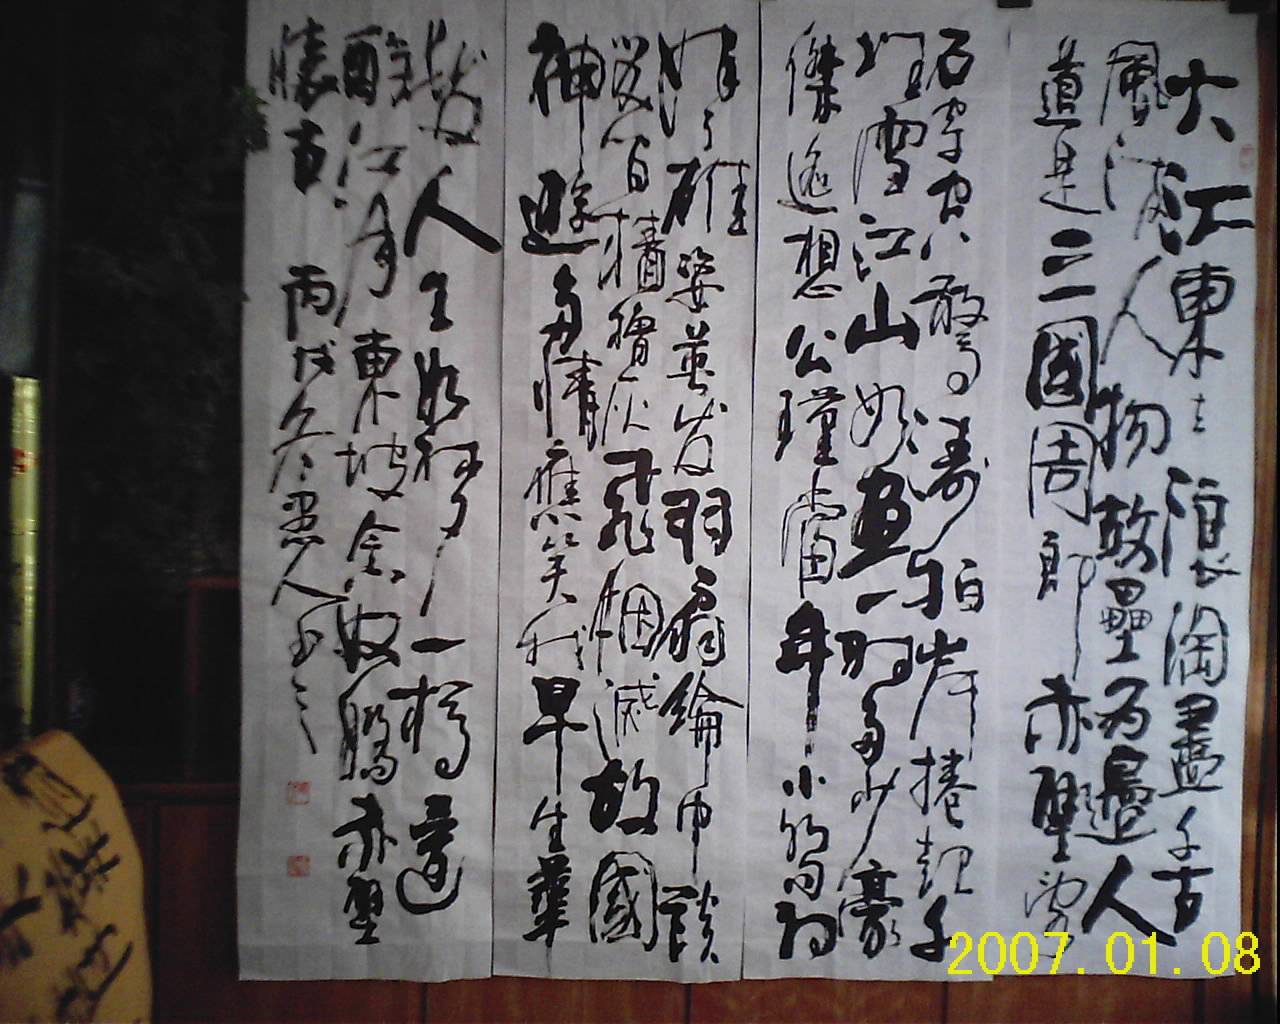 大江東去浪淘盡千古
風流人物故壘西邊人
道是三國周郎赤壁亂
石穿空驚濤拍岸捲起千
堆雪江山如畫一時多少豪
傑遙想公瑾當年小喬初
嫁了雄姿英發羽扇綸巾談
笑間檣櫓灰飛烟滅故國
神遊多情應笑我早生華
髮人生如夢一樽還
酹江月東坡念奴嬌赤壁
懷古 丙戌冬愚人
2007.01.08